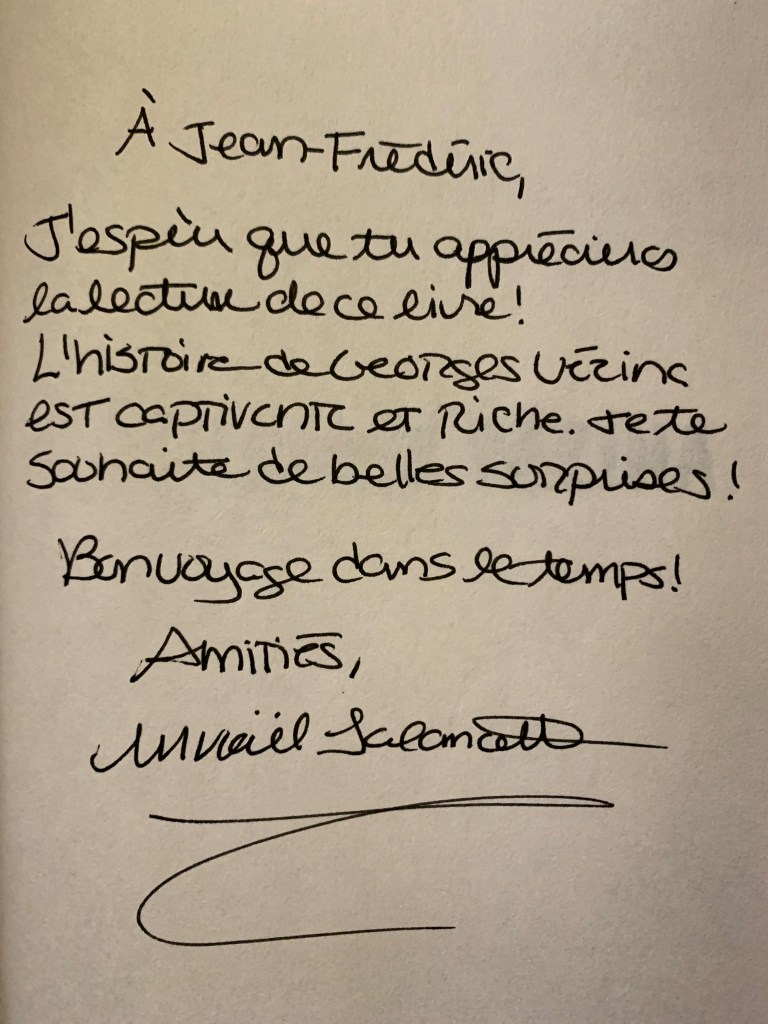 À Jean-Frédéric,
J'espère que tu apprécieras
la lecture de ce livre!
L'histoire de Georges Vézina
est captivante et riche. Je te
souhaite de belles surprises!
Bon voyage dans le temps!
Amitiés,
Mikaël